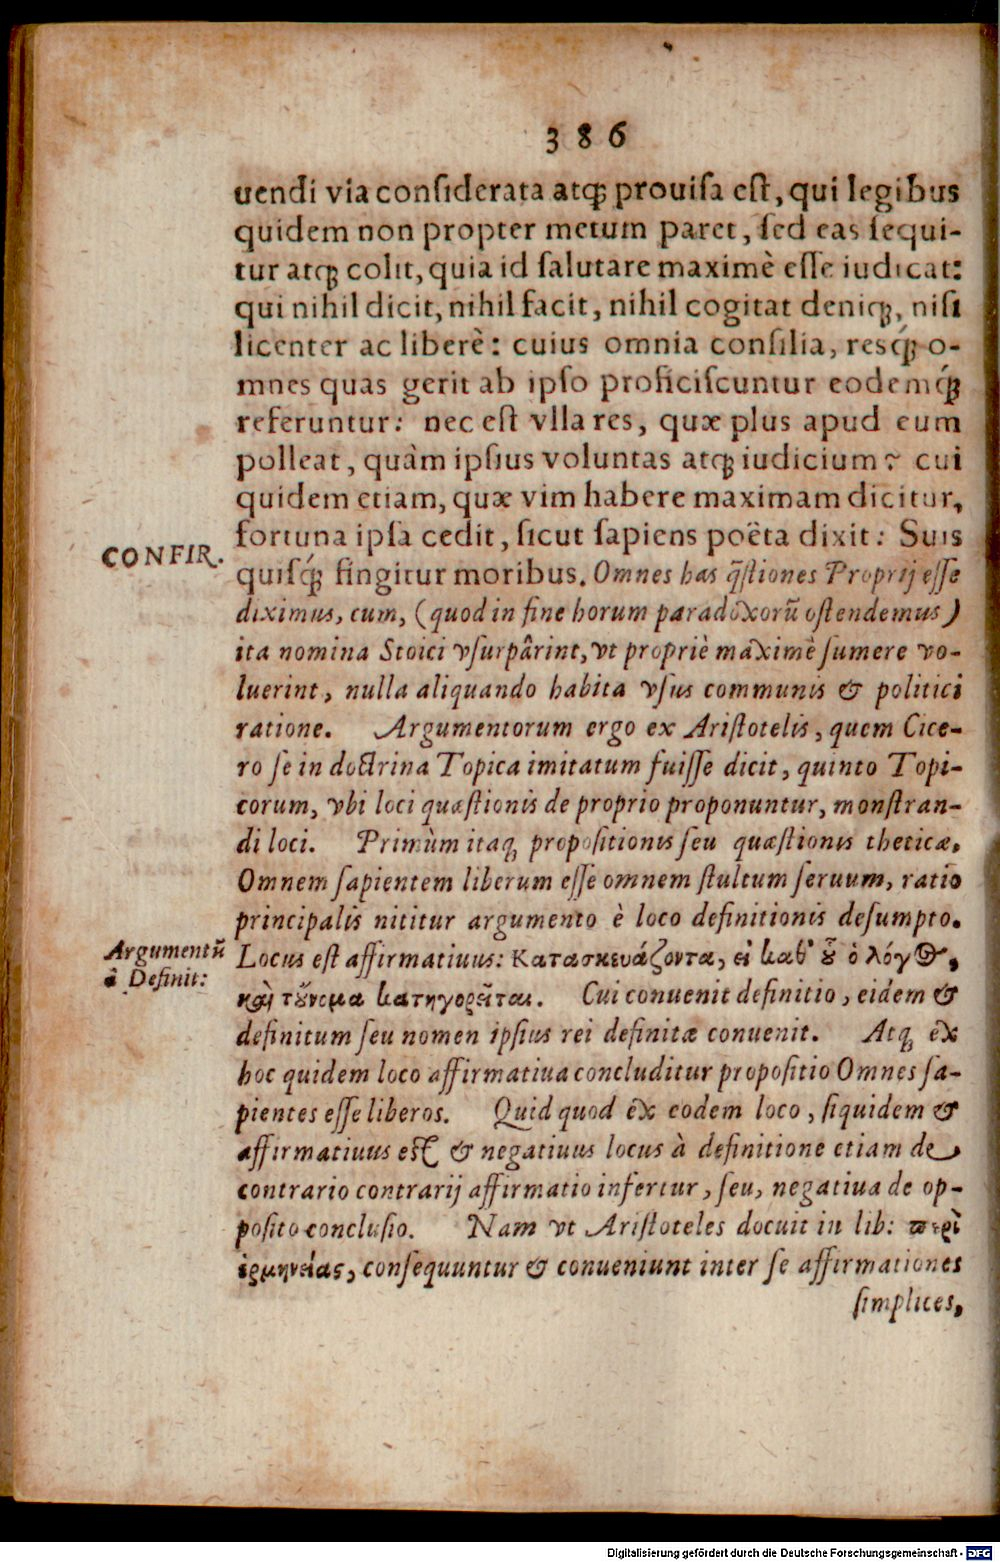 386
uendi via considerata atq; prouisa est, qui legibus
quidem non propter metum paret, sed eas sequi-
tur atq; colit, quia id salutare maximè esse iudicat:
qui nihil dicit, nihil facit, nihil cogitat deniq;, nisi
licenter ac liberè: cuius omnia consilia, resq́; o-
mnes quas gerit ab ipso proficiscuntur eodemq́;
referuntur: nec est vlla res, quæ plus apud eum
polleat, quàm ipsius voluntas atq; iudicium? cui
quidem etiam, quæ vim habere maximam dicitur,
fortuna ipsa cedit, sicut sapiens poëta dixit: Suis
CONFIR.
quisq́; fingitur moribus. Omnes has q̃stiones Proprij esse
diximus, cum, (quod in fine horum paradoxorũ ostendemus)
ita nomina Stoici vsurpârint, vt propriè maximè sumere vo-
luerint, nulla aliquando habita vsus communis & politici
ratione. Argumentorum ergo ex Aristotelis, quem Cice-
ro se in doctrina Topica imitatum fuisse dicit, quinto Topi-
corum, vbi loci quæstionis de proprio proponuntur, monstran-
di loci. Primùm itaq; propositionis seu quæstionis theticæ,
Omnem sapientem liberum esse omnem stultum seruum, ratio
principalis nititur argumento è loco definitionis desumpto.
Argumentũ
à Definit:
Locus est affirmatiuus: Κατασκευάζοντα, εἰ καθ' οὗ ὁ λόγος,
καὶ τοὔνομα κατηγορεῖται. Cui conuenit definitio, eidem &
definitum seu nomen ipsius rei definitæ conuenit. Atq; ex
hoc quidem loco affirmatiua concluditur propositio Omnes sa-
pientes esse liberos. Quid quod ex eodem loco, siquidem &
affirmatiuus est & negatiuus locus à definitione etiam de
contrario contrarij affirmatio infertur, seu, negatiua de op-
posito conclusio. Nam vt Aristoteles docuit in lib: περὶ
ἑρμηνείας, consequuntur & conueniunt inter se affirmationes
simplices,
Digitalisierung gefördert durch die Deutsche Forschungsgemeinschaft - DFG